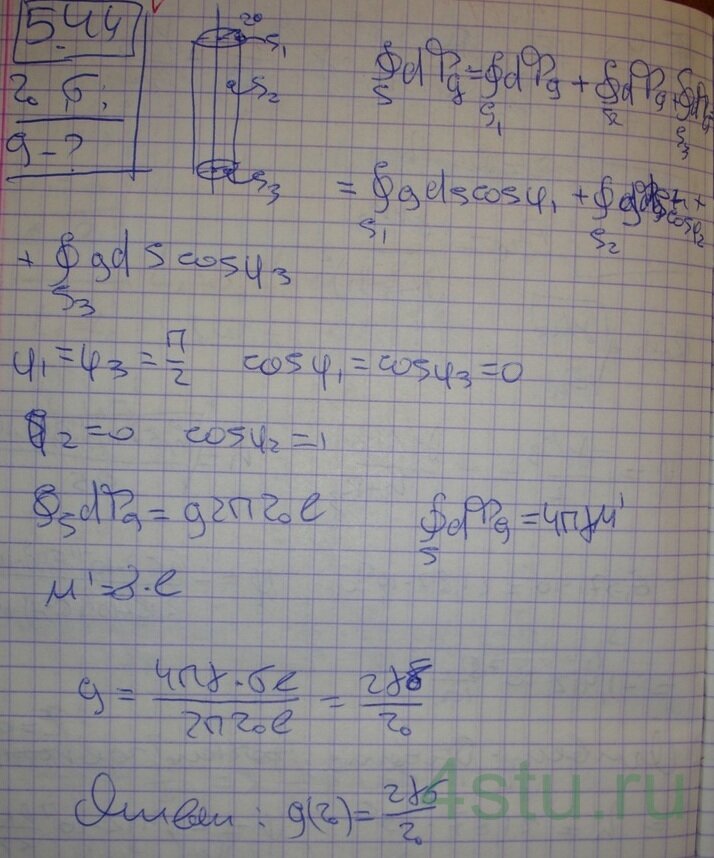 5.44
r₀ σ;
g - ?
r₀
S₁
S₂
S₃
∮_S dΦg = ∮_S₁ dΦg + ∮_S₂ dΦg + ∮_S₃ dΦg
= ∮_S₁ g ds cosφ₁ + ∮_S₂ g ds cosφ₂ +
+ ∮_S₃ g d s cosφ₃
φ₁ = φ₃ = π/2 cosφ₁ = cosφ₃ = 0
φ₂ = 0 cosφ₂ = 1
∮_S dΦg = g 2π r₀ l ∮_S dΦg = 4πγM'
M' = σ·l
g = 4πγ·σl / 2πr₀l = 2γσ / r₀
Ответ: g(r₀) = 2γσ / r₀
4stu.ru